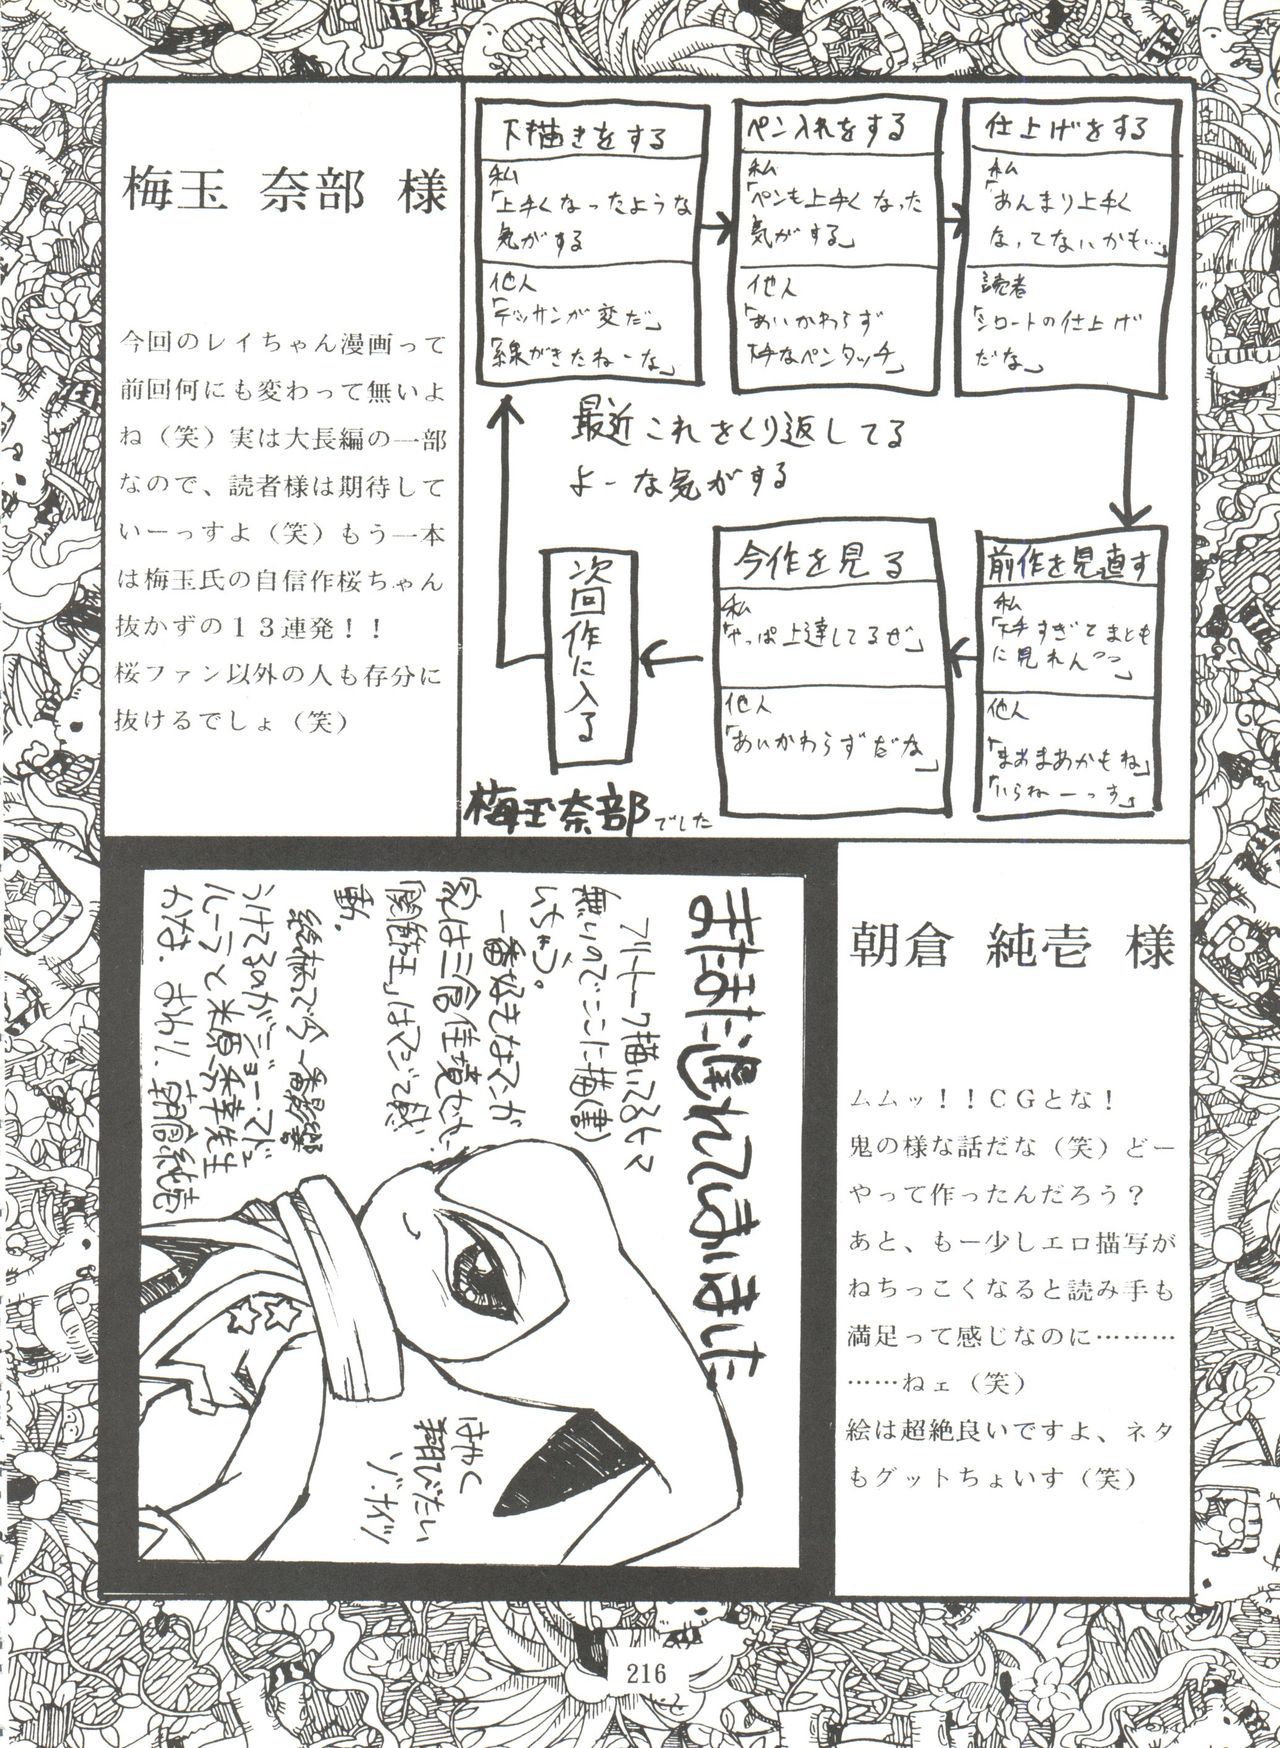 梅玉 奈部 様
今回のレイちゃん漫画って
前回何にも変わって無いよ
ね（笑）実は大長編の一部
なので、読者様は期待して
いーっすよ（笑）もう一本
は梅玉氏の自信作桜ちゃん
抜かずの１３連発！！
桜ファン以外の人も存分に
抜けるでしょ（笑）
下描きをする
私
「上手くなったような
気がする
他人
「デッサンが変だ」
「線がきたねーな」
ペン入れをする
私
「ペンも上手くなった
気がする」
他人
「あいかわらず
なペンタッチ」
仕上げをする
私
「あんまり上手く
なってないかも…」
読者
「シロートの仕上げ
だな」
最近これをくり返してる
よーな気がする
前作を見直す
私
すぎてまとも
に見れん
他人
「まあまあかもね」
「いらねーっす」
今作を見る
私
「やっぱ上達してるぜ」
他人
「あいかわらずだな」
次回作に入る
梅玉奈部でした
またまた遅れてしまいました
フリートーク描いてるヒマ
無いのでここに描(書)
いちゃう。
一番好きなマンガ
家は三倉佳境なんだ
「闇龍王」はマジで感
動。
絵柄で今一番影響
うけてるのがジョー・マデュ
レーラと米原 先生
かな。おわり。朝倉純壱
はやく
遊びたい
ゾ、ナイツ
朝倉 純壱 様
ムムッ！！ＣＧとな！
鬼の様な話だな（笑）どー
やって作ったんだろう？
あと、もー少しエロ描写が
ねちっこくなると読み手も
満足って感じなのに………
……ねェ（笑）
絵は超絶良いですよ、ネタ
もグットちょいす（笑）
216